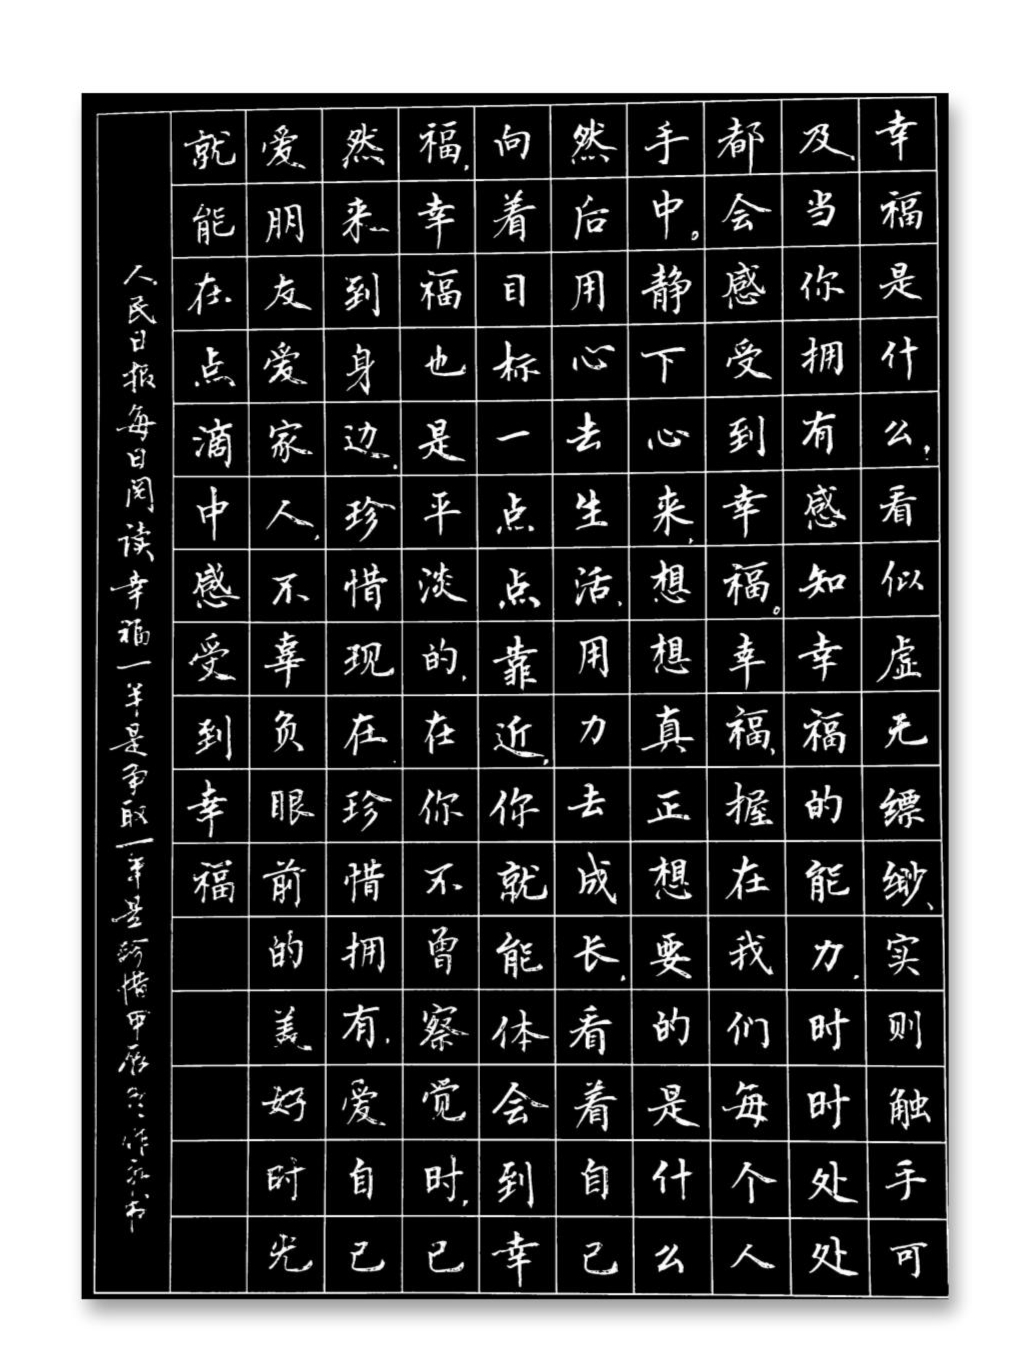 幸福是什么,看似虚无缥缈、实则触手可
及、当你拥有感知幸福的能力,时时处处
都会感受到幸福。幸福、握在我们每个人
手中。静下心来,想想真正想要的是什么
然后用心去生活、用力去成长,看着自己
向着目标一点点靠近,你就能体会到幸
福,幸福也是平淡的,在你不曾察觉时,已
然来到身边.珍惜现在珍惜拥有,爱自己
爱朋友爱家人,不辜负眼前的美好时光
就能在点滴中感受到幸福
人民日报每日阅读幸福一半是争取一半是珍惜甲辰冬作永书